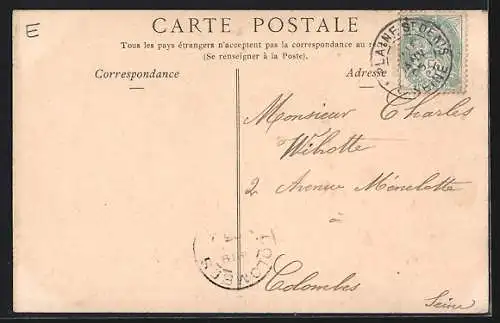 E
CARTE POSTALE
Tous les pays étrangers n'acceptent pas la correspondance au
(Se renseigner à la Poste).
Correspondance
Adresse
LA PLAINE ST DENIS
SEINE
Monsieur Charles
Wihotte
2 Avenue Ménelotte
à
Colombes
Seine
COLOMBES